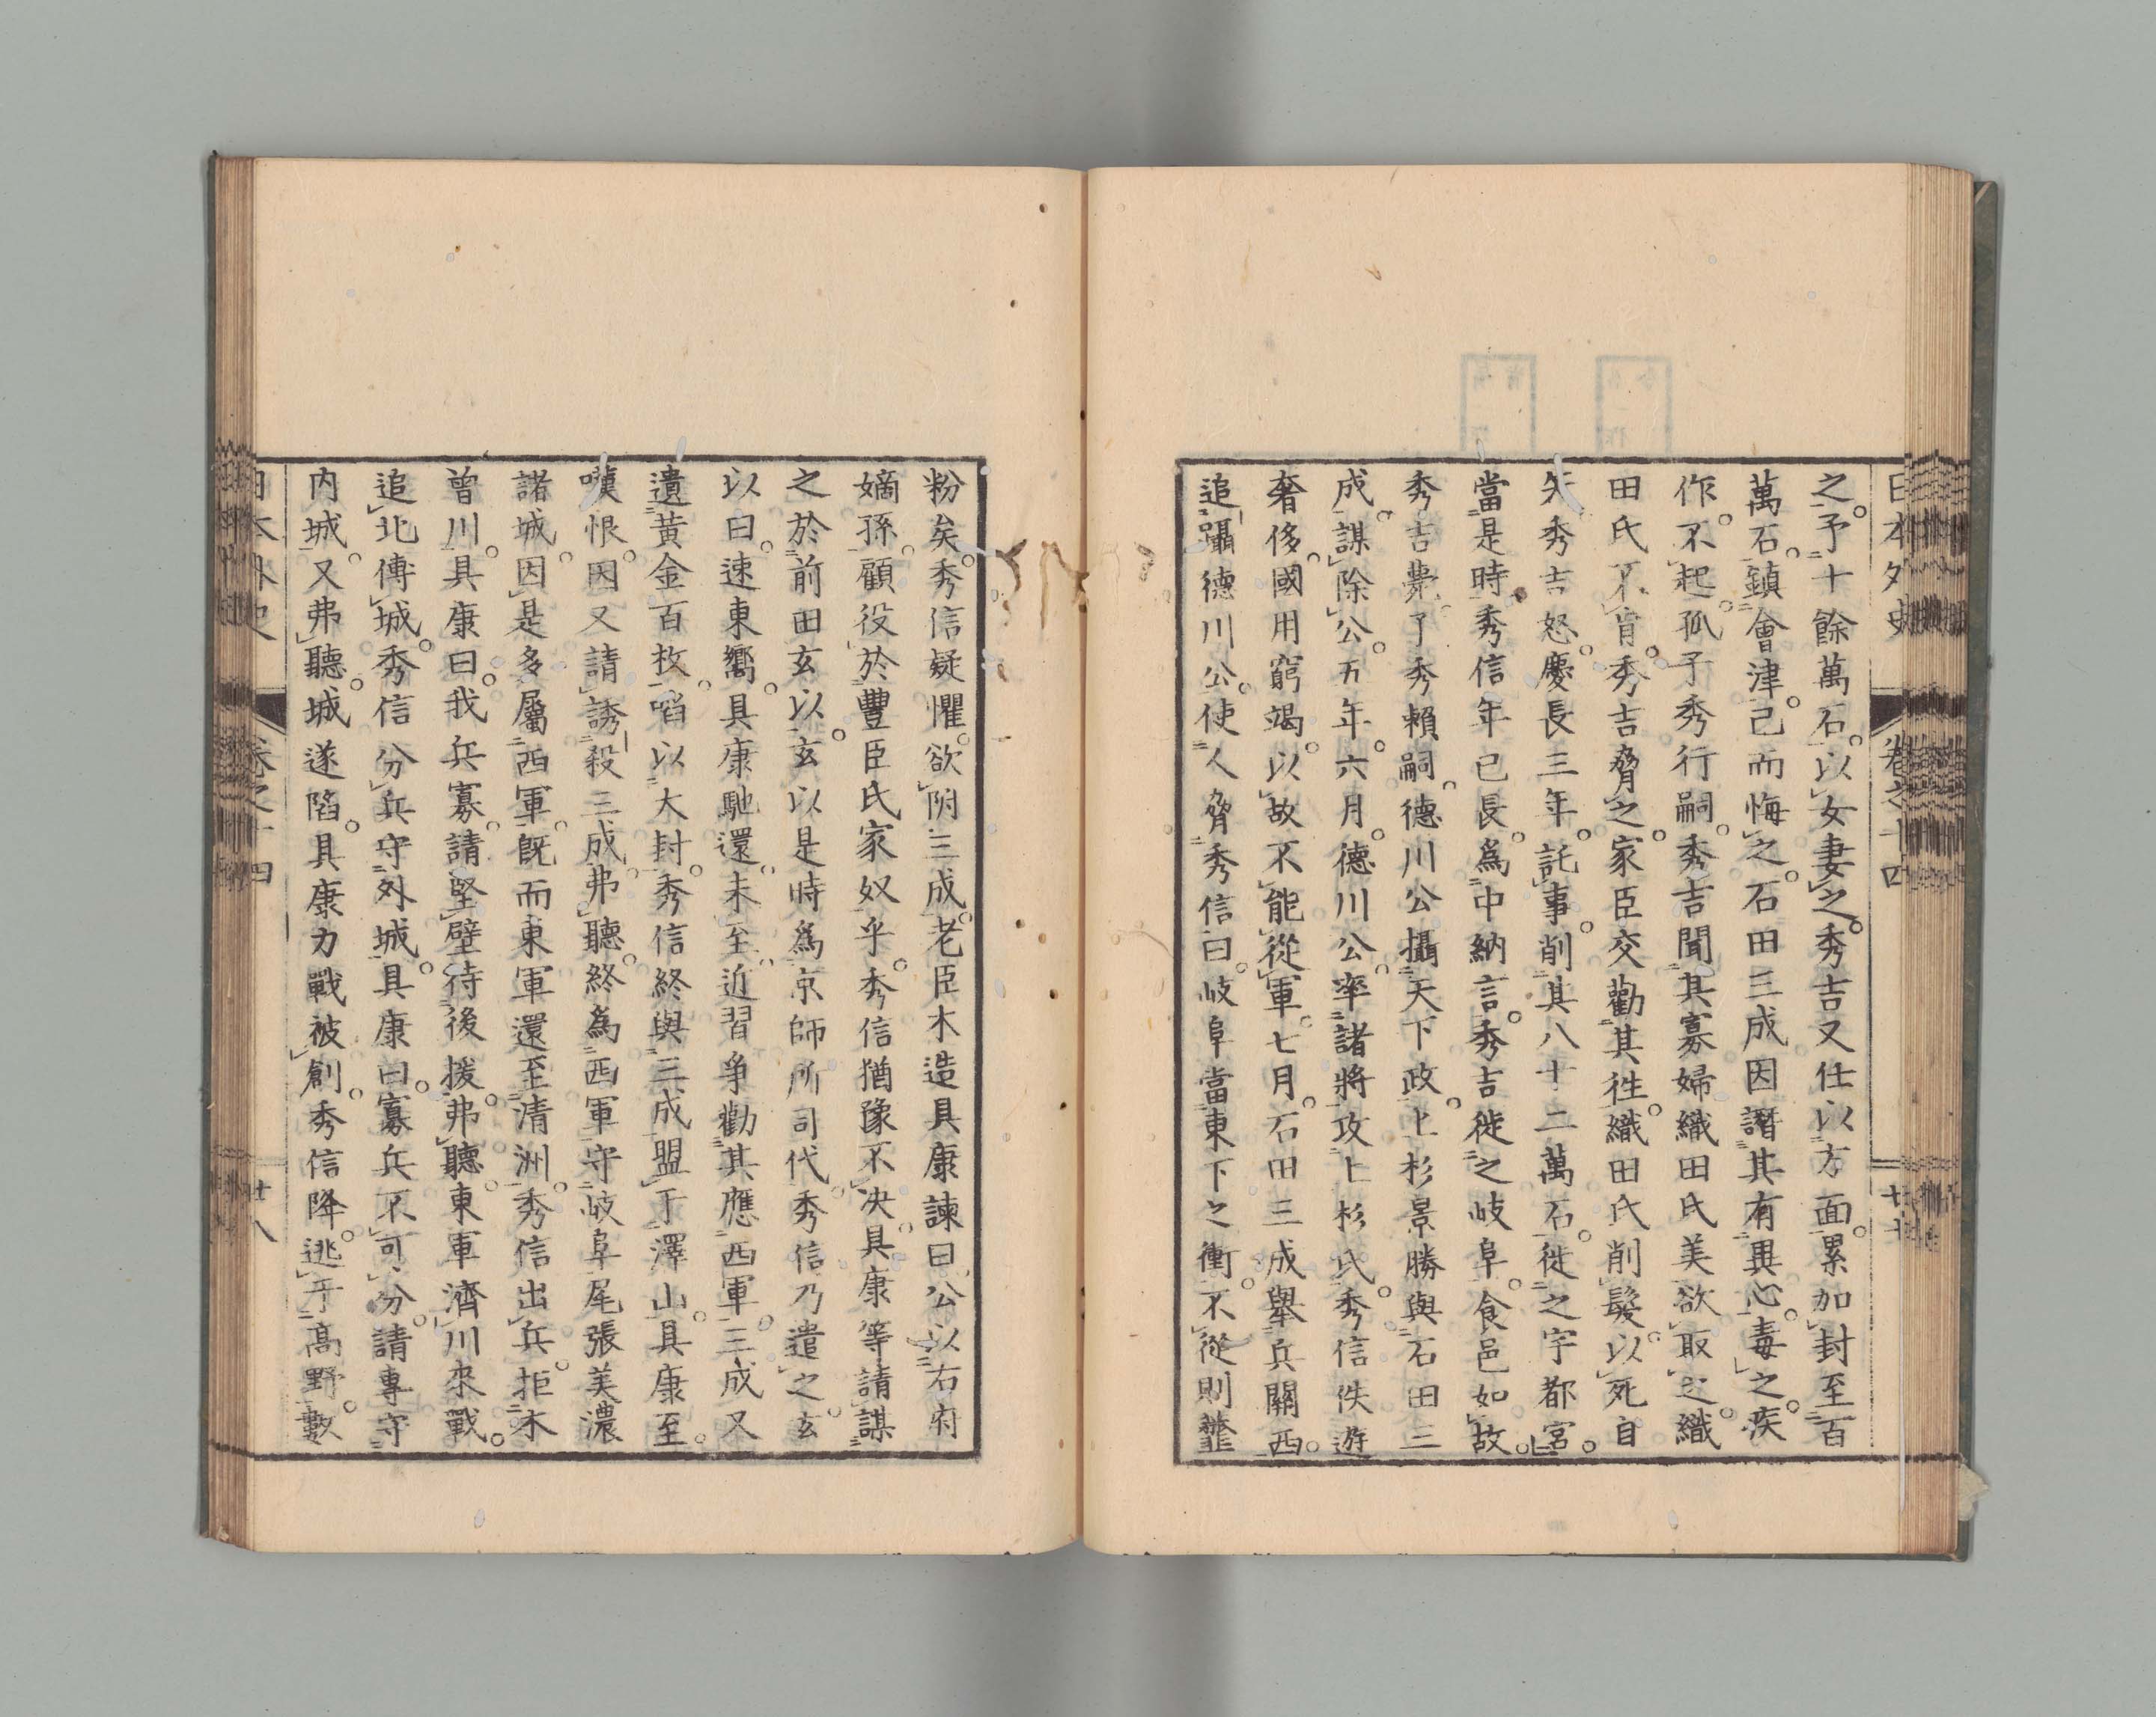 日本外史 卷之十四 廿七
之。予十餘萬石。以女妻之。秀吉又仕以方面。累加封至百
萬石。鎮會津。已而悔之。石田三成因譖其有異心。毒之。疾
作。不起。孤子秀行嗣。秀吉聞其寡婦織田氏美。欲取之。織
田氏不肯。秀吉脅之。家臣交勸其徃。織田氏削髮。以死自
矢。秀吉怒。慶長三年。託事。削其八十二萬石。徙之宇都宮。
當是時秀信年已長。爲中納言。秀吉徙之岐阜。食邑如故。
秀吉薨。子秀賴嗣。德川公攝天下政。上杉景勝與石田三
成。謀除公。五年。六月。德川公率諸將攻上杉氏。秀信佚遊
奢侈。國用窮竭。以故不能從軍。七月。石田三成舉兵關西。
追躡德川公。使人脅秀信曰。岐阜當東下之衝。不從則虀
粉矣。秀信疑懼。欲附三成。老臣木造具康諫曰。公以右府
嫡孫。顧役於豐臣氏家奴乎。秀信猶豫不决。具康等請謀
之於前田玄以。玄以是時爲京師所司代。秀信乃遣之。玄
以曰。速東嚮。具康馳還。未至。近習爭勸其應西軍。三成又
遺黃金百枚。啗以大封。秀信終與三成盟于澤山。具康至。
嘆恨。因又請誘殺三成。弗聽。終爲西軍守岐阜。尾張美濃
諸城。因是多屬西軍。旣而東軍還至清洲。秀信出兵。拒木
曾川。具康曰。我兵寡。請堅壁待後援。弗聽。東軍濟川來戰。
追北傅城。秀信分兵守外城。具康曰。寡兵不可分。請專守
内城。又弗聽。城遂陷。具康力戰被創。秀信降。逃于高野。數
日本外史 卷之十四 廿八